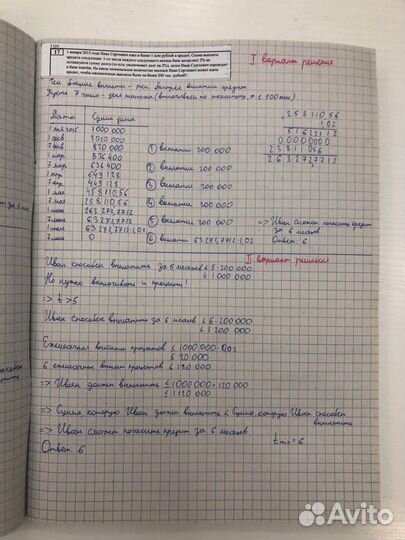 17
1 января 2015 года Иван Сергеевич взял в банке 1 млн рублей в кредит. Схема выплаты
кредита следующая: 1-го числа каждого следующего месяца банк начисляет 2% на
оставшуюся сумму долга (то есть увеличивает долг на 2%), затем Иван Сергеевич переводит
в банк платёж. На какое минимальное количество месяцев Иван Сергеевич может взять
кредит, чтобы ежемесячные выплаты были не более 200 тыс. рублей?
I вариант решения
Чем больше выплата - тем быстрее выплатим кредит
Пусть 7 число - день платежа (выплачиваем по максимуму, т.е 200 тыс)
Дата: Сумма долга
1 янв 2015 1 000 000
1 фев 1 020 000
7 фев 820 000 ① выплатили 200 000
1 мар 836 400
7 мар 636 400 ② выплатили 200 000
1 апр 649 128
7 апр 449 128 ③ выплатили 200 000
1 мая 458 110,56
7 мая 258 110,56 ④ выплатили 200 000
1 июня 263 272,7712
7 июня 63 272,7712 ⑤ выплатили 200 000
1 июля 63 272,7712·1,02
7 июля 0 ⑥ выплатили 63 272,7712·1,02
258110,56
1,02
51622112
000000000
25811056
263272,7712
=> Иван сможет погасить кредит
за 6 месяцев
Ответ: 6
II вариант решения
Иван способен выплатить за 5 месяцев ≤ 5·200000
≤ 1 000 000
Но нужно выплачивать и проценты!
=> t > 5
Иван способен выплатить за 6 месяцев ≤ 6·200000
≤ 1 200 000
Ежемесячная выплата процентов ≤ 1000000·0,02
≤ 20 000
6 ежемесячных выплат процентов ≤ 120 000
=> Иван должен выплатить ≤ 1000000+120 000
≤ 1 120 000
=> Сумма, которую Иван должен выплатить ≤ Сумма, которую Иван способен
выплатить
=> Иван сможет погасить кредит за 6 месяцев
Ответ: 6
Avito